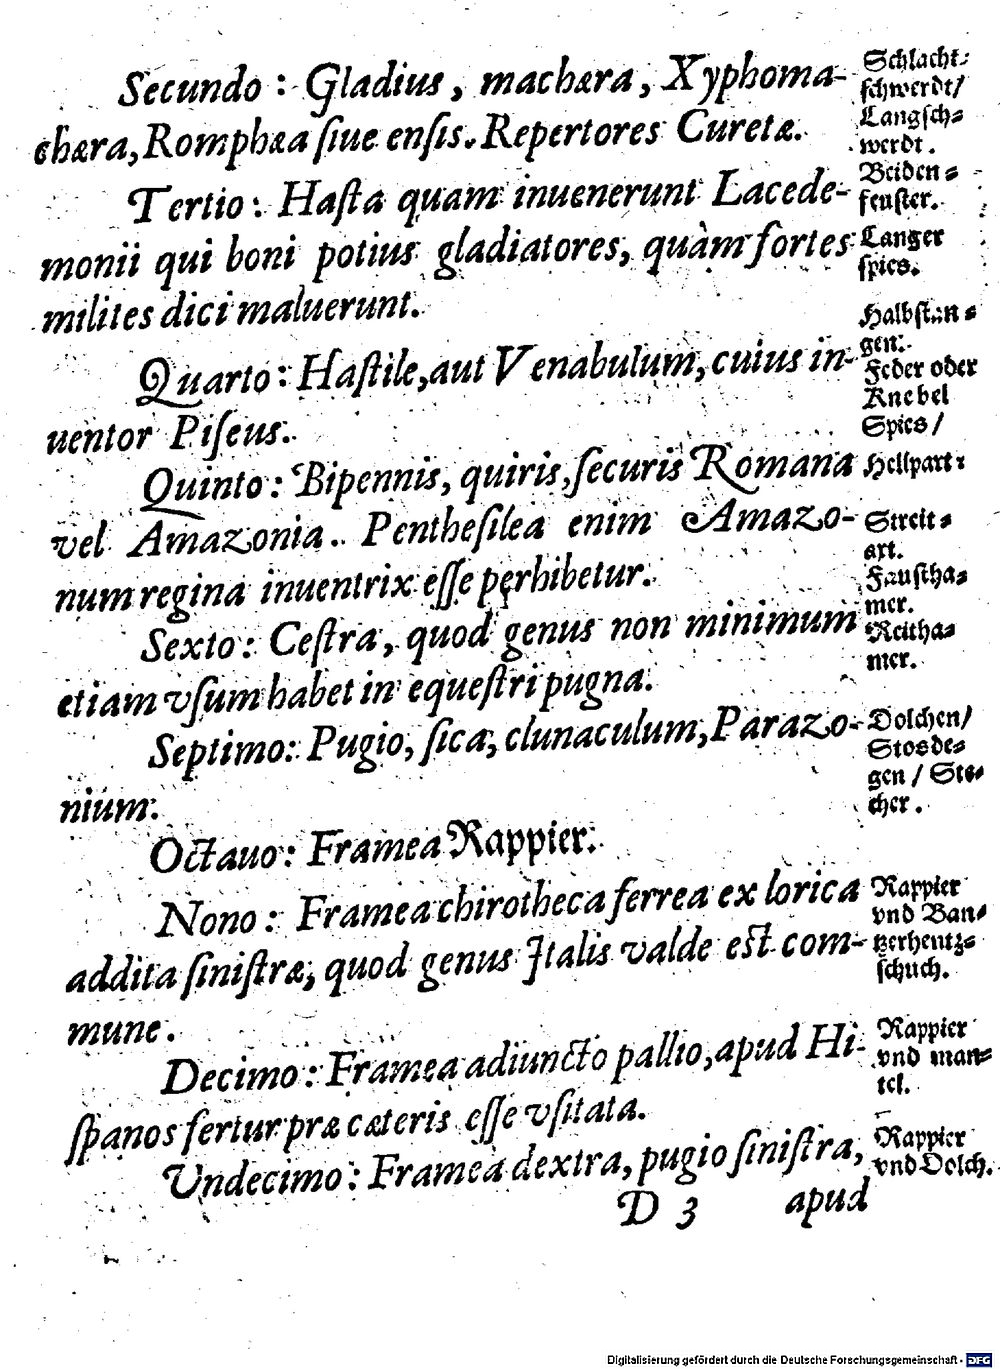 Secundo: Gladius, machæra, Xyphoma-
chæra, Romphæa ſiue enſis. Repertores Curetæ.
Tertio: Haſta quam inuenerunt Lacede-
monii qui boni potius gladiatores, quàm fortes
milites dici maluerunt.
Quarto: Haſtile, aut Venabulum, cuius in-
uentor Piſeus.
Quinto: Bipennis, quiris, ſecuris Romana
vel Amazonia. Pentheſilea enim Amazo-
num regina inuentrix eſſe perhibetur.
Sexto: Ceſtra, quod genus non minimum
etiam vſum habet in equeſtri pugna.
Septimo: Pugio, ſica, clunaculum, Parazo-
nium.
Octauo: Framea Rappier.
Nono: Framea chirotheca ferrea ex lorica
addita ſiniſtræ, quod genus Italis valde est com-
mune.
Decimo: Framea adiuncto pallio, apud Hi-
ſpanos fertur præ cæteris eſſe vſitata.
Undecimo: Framea dextra, pugio ſiniſtra,
D 3 apud
Schlacht-
ſchwerdt/
Langſch-
werdt.
Beiden-
feuſter.
Langer
ſpies.
Halbſtan-
gen.
Feder oder
Knebel
Spies/
Hellpart.
Streit-
axt.
Fauſtha-
mer.
Reitha-
mer.
Dolchen/
Stosde-
gen / Ste-
cher.
Rappier
vnd Pan-
tzerhentz-
ſchuch.
Rappier
vnd man-
tel.
Rappier
vnd Dolch.
Digitalisierung gefördert durch die Deutsche Forschungsgemeinschaft - DFG